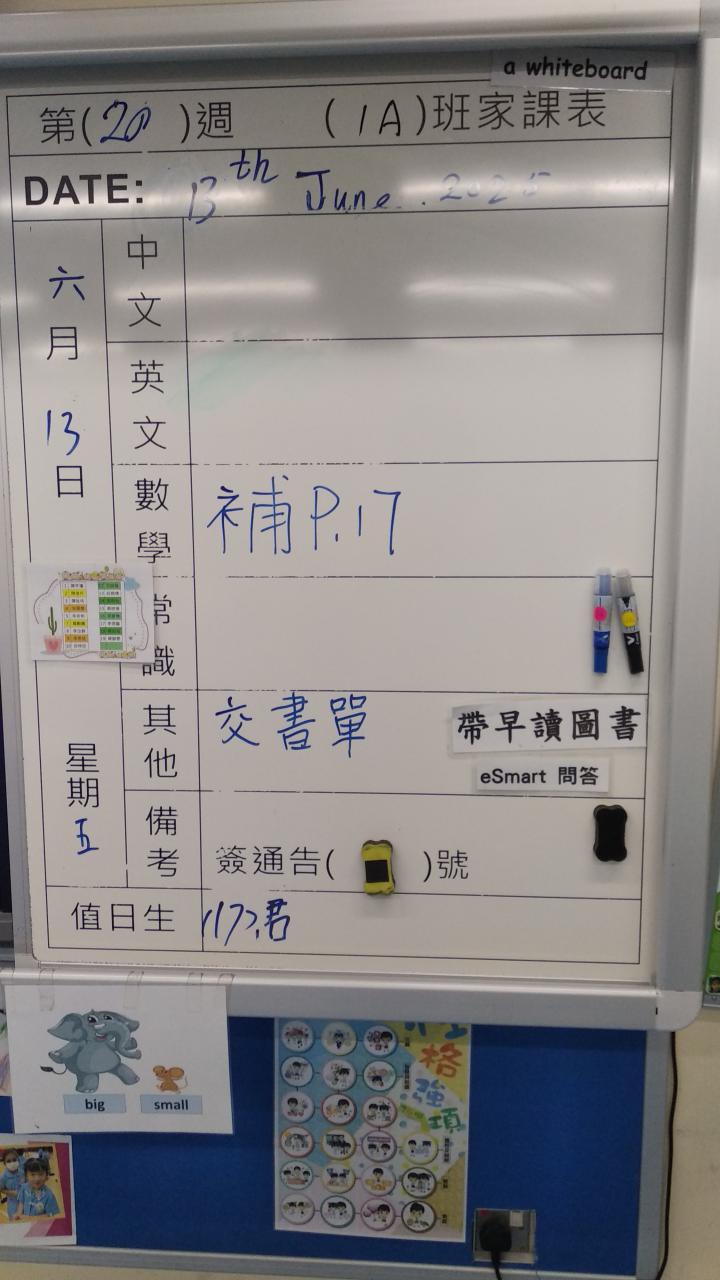 a whiteboard
第(20)週 (1A)班家課表
DATE: 13th June. 2025
六月13日
星期五
中文
英文
數學 補P.17
常識
其他 交書單 帶早讀圖書
eSmart 問答
備考 簽通告( )號
值日生
big small
格
強
項